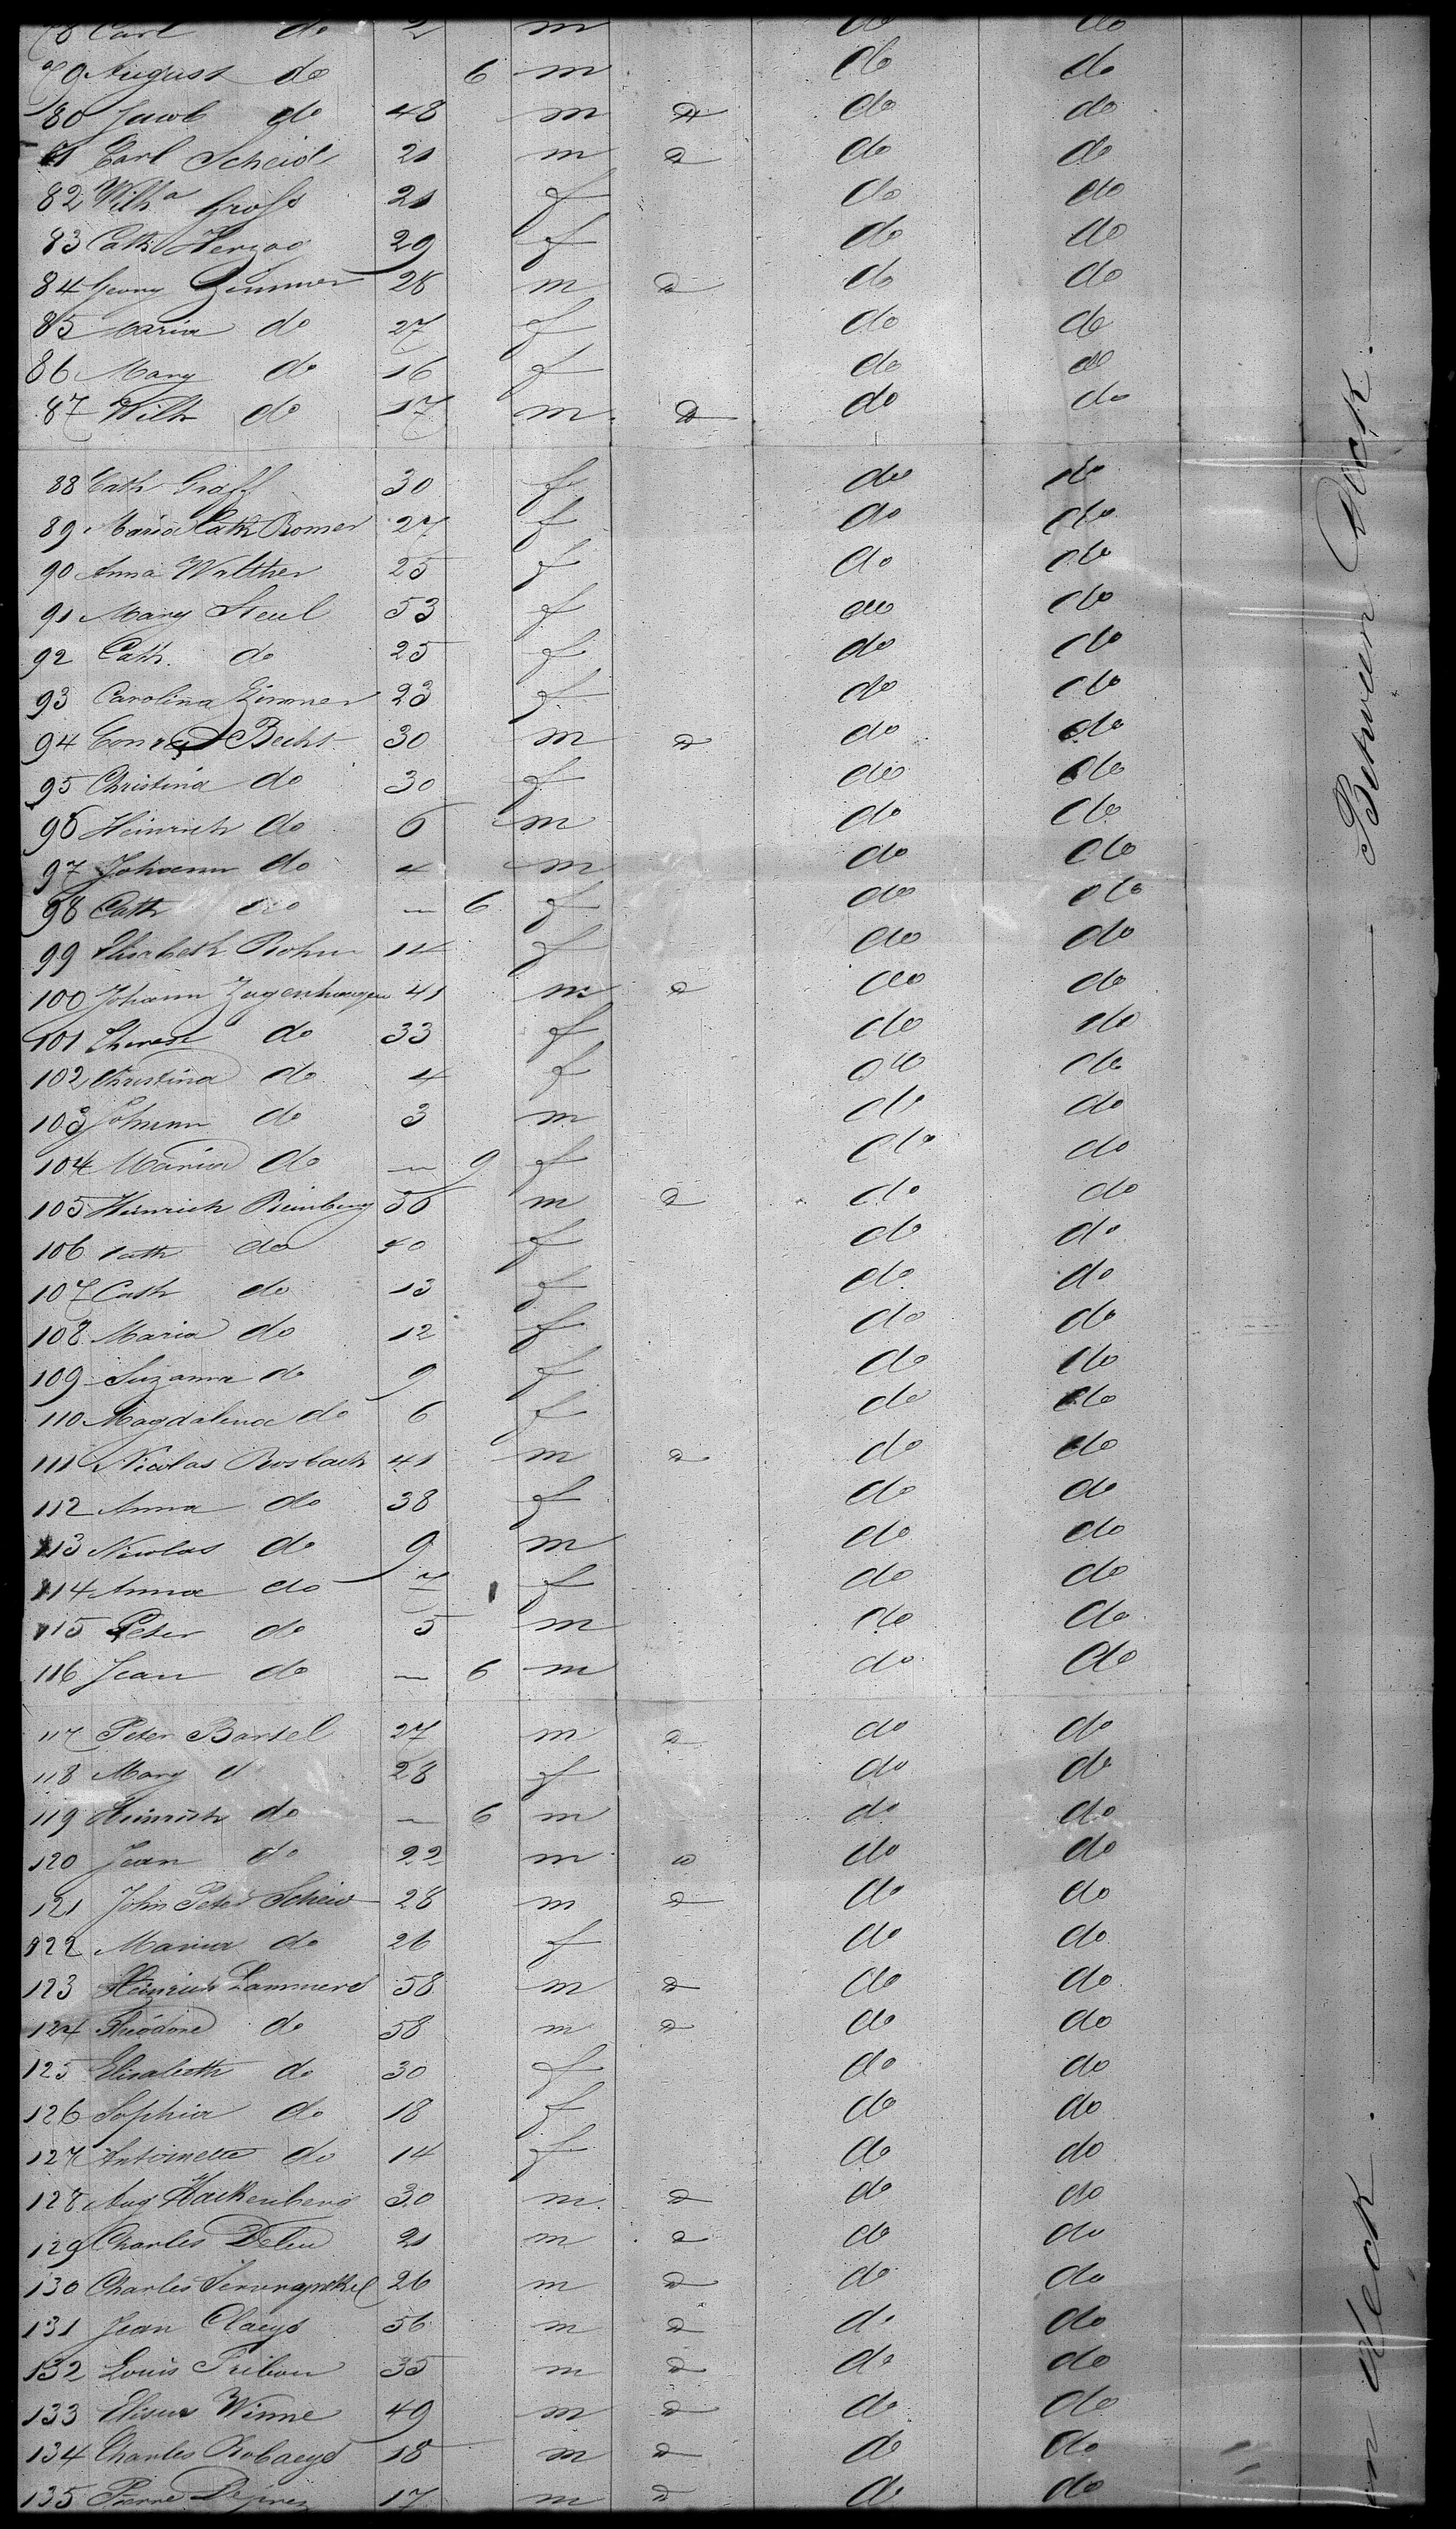 78 Carl do 2 m do do
79 August do 6 m do do
80 Jacob do 48 m do do do
81 Carl Scheid 21 m do do do
82 Wilh.a Grofs 21 f do do
83 Cath Herzog 29 f do do
84 Georg Zimmer 28 m do do do
85 Maria do 27 f do do
86 Mary do 16 f do do
87 Wilh do 17 m do do do
88 Cath Graff 30 f do do
89 Maria Cath Romer 27 f do do
90 Anna Walther 25 f do do
91 Mary Steul 53 f do do
92 Cath. do 25 f do do
93 Carolina Zimmer 23 f do do
94 Conrad Becht 30 m do do do
95 Christina do 30 f do do
96 Heinrich do 6 m do do
97 Johann do 4 m do do
98 Cath do — 6 f do do
99 Elisabeth Rohm 14 f do do
100 Johann Zagenhagen 41 m do do do
101 Theres do 33 f do do
102 Christina do 4 f do do
103 Johann do 3 m do do
104 Maria do — 9 f do do
105 Heinrich Reinberg 56 m do do do
106 Cath do 40 f do do
107 Cath do 13 f do do
108 Maria do 12 f do do
109 Suzanna do 9 f do do
110 Magdalena do 6 f do do
111 Nicolas Rosbach 41 m do do do
112 Anna do 38 f do do
113 Nicolas do 9 m do do
114 Anna do 7 f do do
115 Peter do 5 m do do
116 Jean do — 6 m do do
117 Peter Bartel 27 m do do do
118 Mary d 28 f do do
119 Heinrich do — 6 m do do
120 Jean do 22 m do do do
121 John Peter Scheid 28 m do do do
122 Maria do 26 f do do
123 Heinrich Lammers 58 m do do do
124 Theodore do 58 m do do do
125 Elisabeth do 30 f do do
126 Sophia do 18 f do do
127 Antoinette do 14 f do do
128 Aug Hackenberg 30 m do do do
129 Charles Deleu 21 m do do do
130 Charles 26 m do do do
131 Jean Claeys 56 m do do do
132 Louis Tribou 35 m do do do
133 Winne 49 m do do do
134 Charles Robaeys 18 m do do do
135 Pierre 17 m do do do
Between Deck.
Deck.